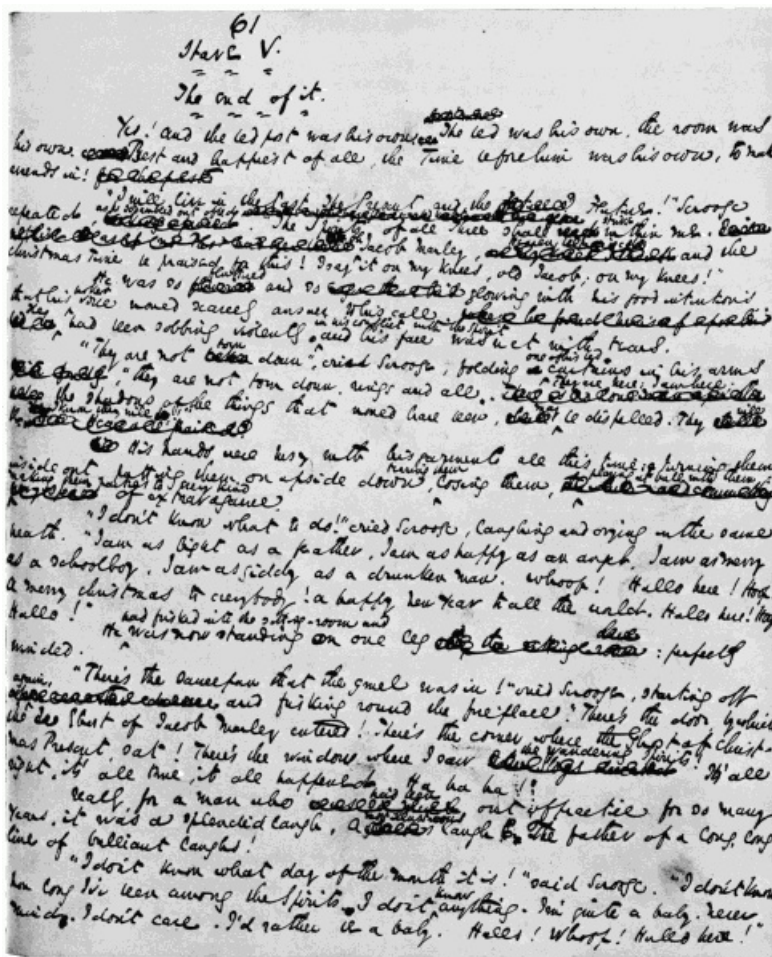 61
Stave V.
The end of it.
Yes! and the bedpost was his own. The bed was his own, the room was
his own. Best and happiest of all, the Time before him was his own, to make
amends in!
"I will live in the Past, the Present, and the Future!" Scrooge
repeated, as he scrambled out of bed. The Spirits of all Three shall strive within me.
Jacob Marley, Heaven, and the
Christmas Time be praised for this! I say it on my knees, old Jacob; on my knees!"
He was so fluttered and so glowing with his good intentions
that his broken voice would scarcely answer to his call.
He had been sobbing violently in his conflict with the Spirit, and his face was wet with tears.
"They are not torn down", cried Scrooge, folding one of his bed curtains in his arms
"they are not torn down, rings and all. They are here; I am here;
the shadows of the things that would have been, may be dispelled. They will
be. I know they will!"
His hands were busy with his garments all this time; turning them
inside out, putting them on upside down, tearing them, losing them,
making them parties to every kind of extravagance.
"I don't know what to do!" cried Scrooge, laughing and crying in the same
breath. "I am as light as a feather, I am as happy as an angel, I am as merry
as a schoolboy. I am as giddy as a drunken man. Whoop! Hallo here! Hoop
A merry christmas to everybody! a happy New Year to all the world. Hallo here! Hoop
Hallo!"
He had frisked into the sitting-room and was now standing there : perfectly
winded.
"There's the saucepan that the gruel was in!" cried Scrooge, starting off
again, and frisking round the fireplace. "There's the door by which
the Ghost of Jacob Marley entered! There's the corner where the Ghost of Christ-
mas Present, sat! There's the window where I saw the wandering Spirits! It's all
right, it's all true, it all happened. Ha ha ha!!
Really, for a man who had been out of practice for so many
years, it was a splendid laugh, a most illustrious laugh. The father of a long, long
line of brilliant laughs!
"I don't know what day of the month it is!" said Scrooge. "I don't know
how long I've been among the Spirits. I don't know anything. I'm quite a baby. Never
mind. I don't care. I'd rather be a baby. Hallo! Whoop! Hallo here!"